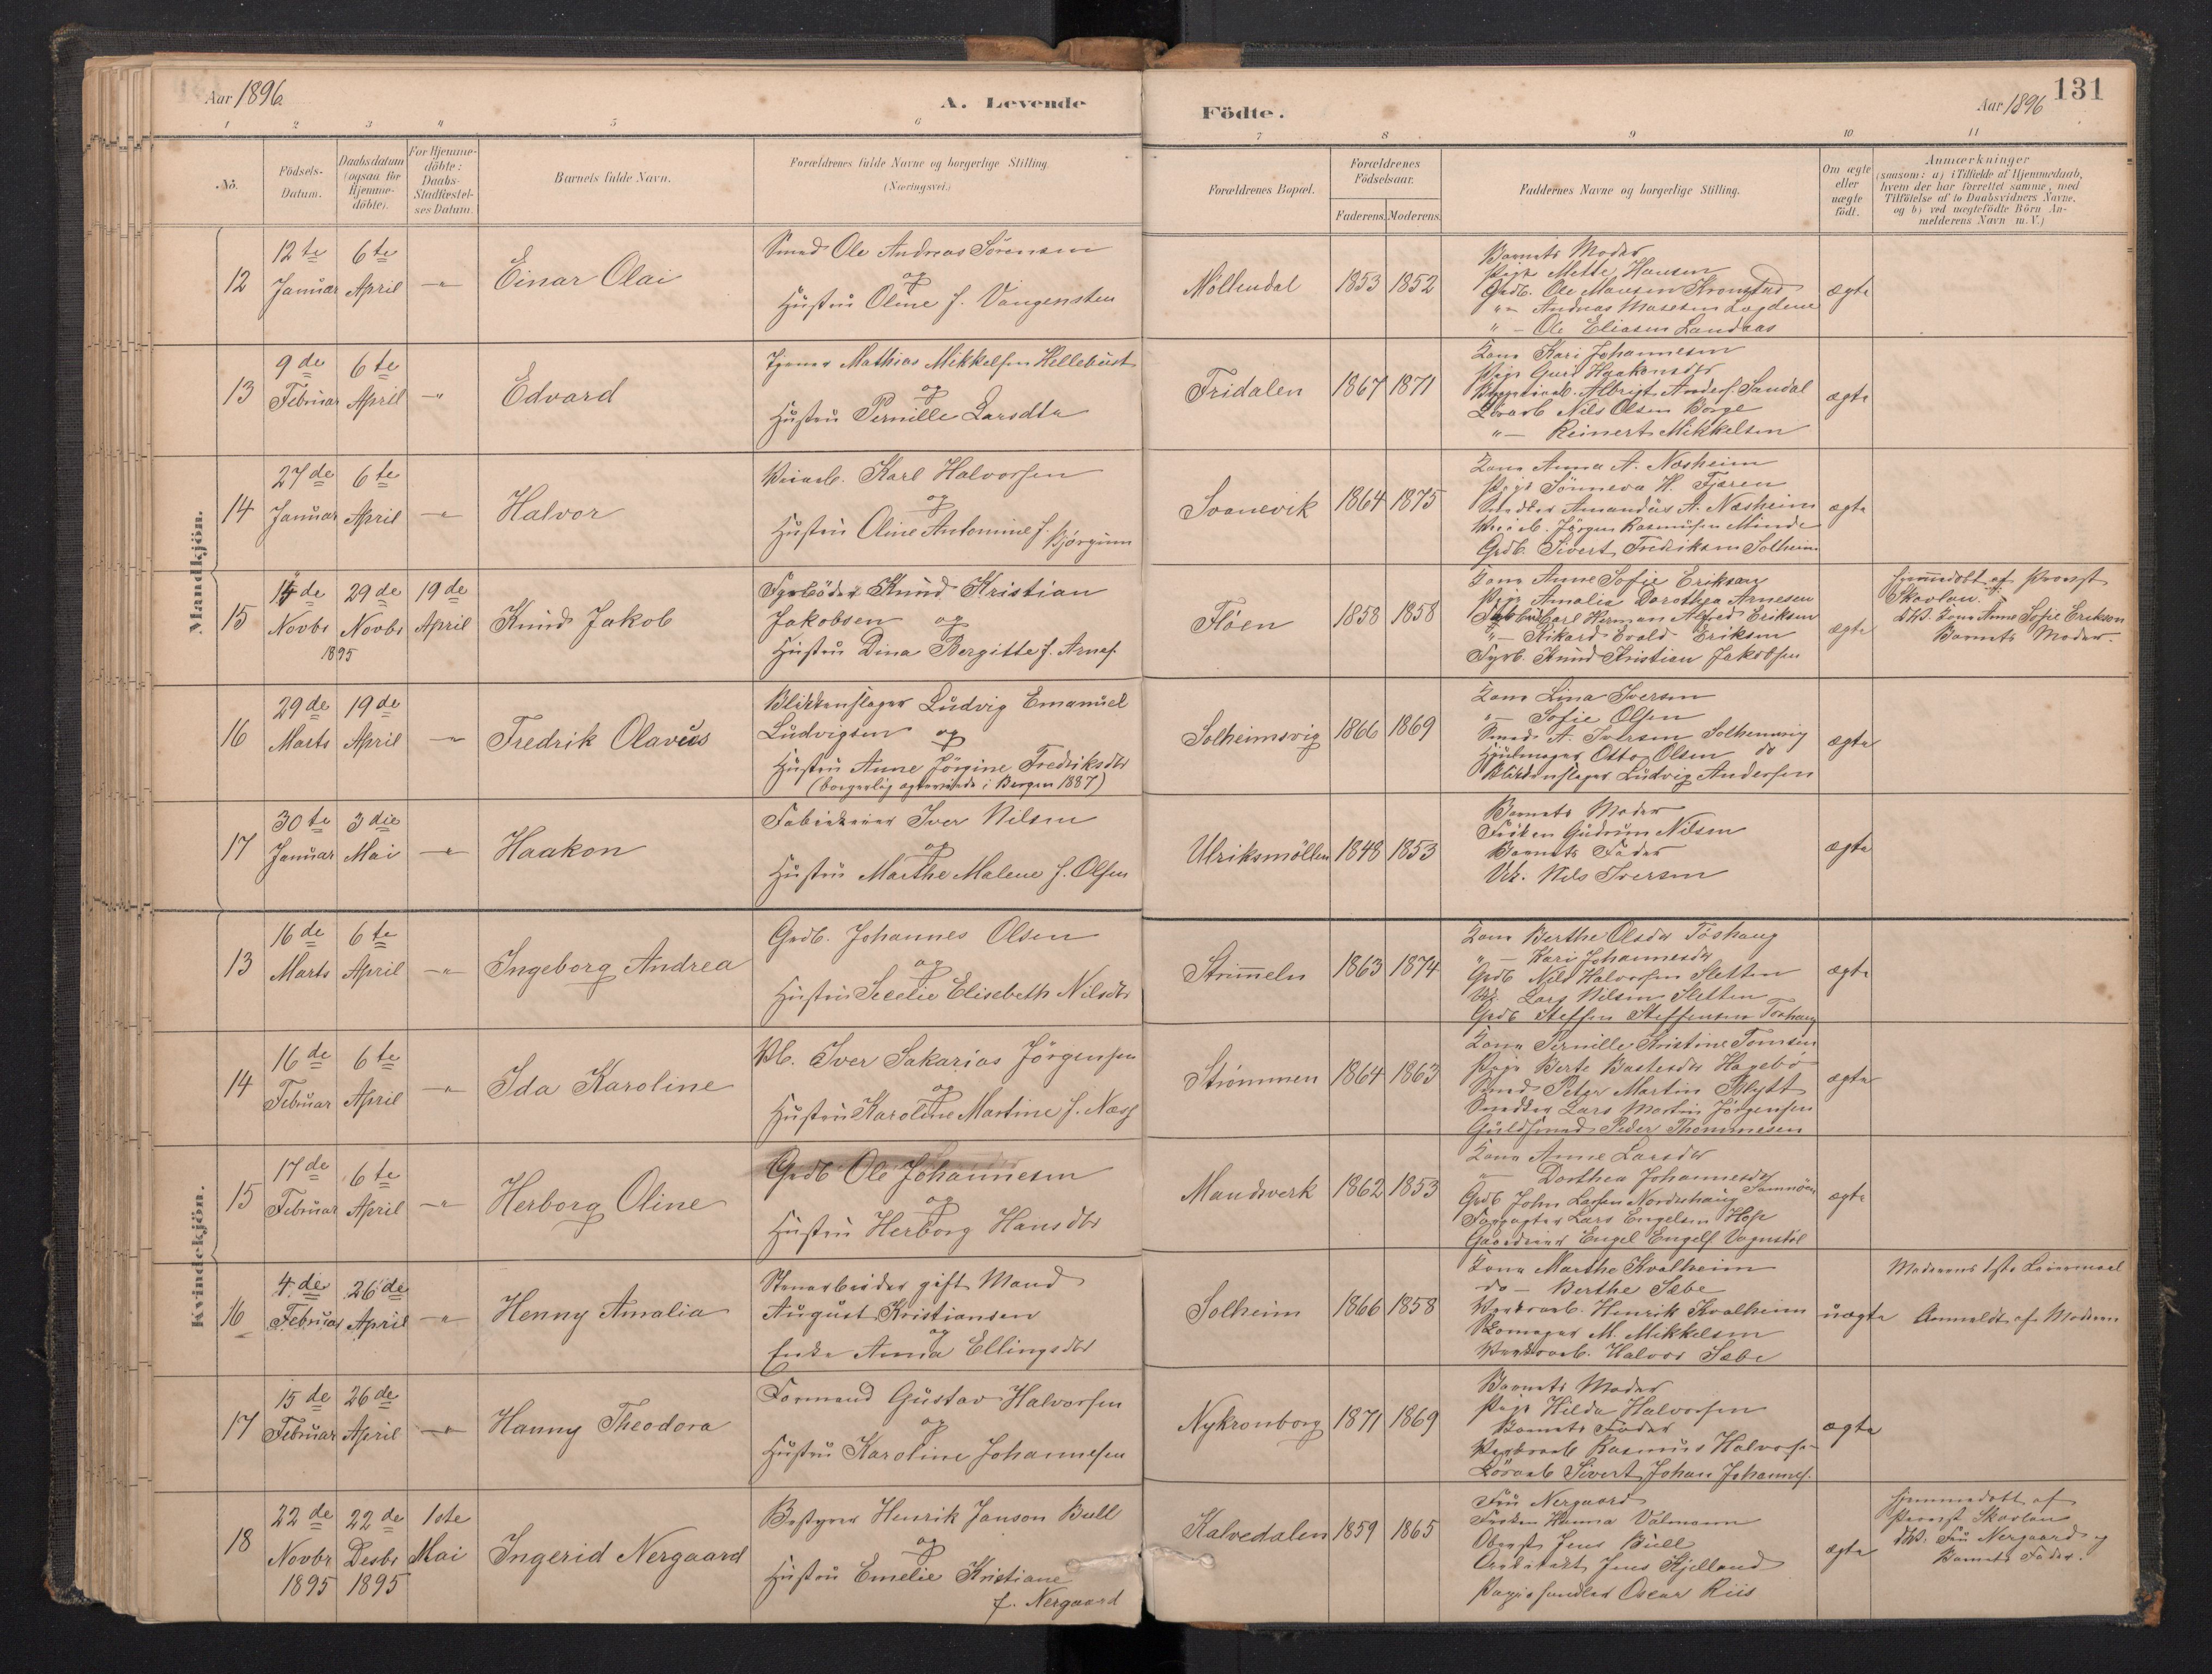 Aar 1896
A. Levende
Födte.
Aar 1896
131
1 2 3 4 5 6 7 8 9 10 11
No.
Födsels-
Datum.
Daabsdatum
(ogsaa for
Hjemme-
döbte).
For Hjemme-
döbte:
Daabs-
Stadfæstel-
ses Datum.
Barnets fulde Navn.
Forældrenes fulde Navne og borgerlige Stilling.
(Næringsvei.)
Forældrenes Bopæl.
Forældrenes
Födselsaar.
Faderens. Moderens.
Faddernes Navne og borgerlige Stilling.
Om ægte
eller
uægte
födt.
Anmærkninger
(saasom: a) i Tilfælde af Hjemmedaab,
hvem der har forrettet samme, med
Tilföielse af to Daabsvidners Navne,
og b) ved uægtefödte Börn An-
melderens Navn m.V.)
Mandkjön.
12
12te
Januar
6te
April
Einar Olai
Smed Ole Andreas Sörensen
og
Hustru Oline f. Vangensten
Möllendal
1853 1852
Barnets Moder
Pige Mette Hansen
Grdb. Ole Monsen Kronstad
"– Andreas Mosesen Lægdene
"– Ole Eliasen Landaas
ægte
13
9de
Februar
6te
April
Edvard
Tjener Mathias Mikkelsen Hellebust
og
Hustru Pernille Larsdtr
Fridalen
1867 1871
Kone Kari Johannesen
Pige Guri Haakonsdtr
Albrigt Anders. Sandal
Nils Olsen Borge
"– Reinert Mikkelsen
ægte
14
27de
Januar
6te
April
Halvor
Karl Halvorsen
og
Hustru Oline Antomine f.
Bjørginn
Svanevik
1864 1875
Kone Anna A. Næsheim
Pige Sönneva H. Fjæren
Amandus A. Næsheim
Jörgen Rasmussen Minde
Grdb. Sivert Fredriksen Solheim
ægte
15
14de
Novbr
29de
Novbr
1895
19de
April
Knud Jakob
Fyrböder Knud Kristian
Jakobsen og
Hustru Dina Bergitte f. Arnes.
Flöen
1858 1858
Kone Anne Sofie Eriksen
Pige Amalia Dorothea Arnesen
Carl Herman Alfred Eriksen
"– Rikard Evald Eriksen
Fyrb. Knud Kristian Jakobsen
ægte
Hjemmedöbt af Provst
Skavlan.
DV. Kone Anne Sofie Eriksen
Barnets Moder.
16
29de
Marts
19de
April
Fredrik Olavus
Blikkenslager Ludvig Emanuel
Ludvigsen og
Hustru Anne Jörgine Fredriksdtr
(borgerlig ægteviede i Bergen 1887)
Solheimsvig
1866 1869
Kone Lina Iversen
"– Sofie Olsen
Smed A. Iversen Solheimsvig
Hjulmager Otto Olsen do
Blikkenslager Ludvig Andersen
ægte
17
30te
Januar
3die
Mai
Haakon
Fabrikeier Iver Nilsen
og
Hustru Marthe Malene f. Olsen
Ulriksmöllen
1848 1853
Barnets Moder
Fröken Gudrun Nilsen
Barnets Fader
Uk. Nils Iversen
ægte
Kvindekjön.
13
16de
Marts
6te
April
Ingeborg Andrea
Grdb. Johannes Olsen
og
Hustru Secelie Elisebeth Nilsdtr
Strimmeln
1863 1874
Kone Berthe Olsdtr Toshaug
"– Kari Johannesdtr
Grdb Nils Halvorsen Sletten
Uk. Lars Nilsen Sletten
Grdb Steffen Steffensen Toshaug
ægte
14
16de
Februar
6te
April
Ida Karoline
Pb. Iver Sakarias Jörgensen
og
Hustru Karoline Martine f. Næss
Strömmen
1864 1863
Kone Pernille Kristine Tomsen
Pige Berte Bastesdtr Hagebö
Smed Peter Martin Blytt
Snedker Lars Martin Jörgensen
Guldsmed Peder Thommesen
ægte
15
17de
Februar
6te
April
Herborg Oline
Grdb Ole Johannesen
og
Hustru Herborg Hansdtr
Mandsverk
1862 1853
Kone Anne Larsdtr
– Dorthea Johannesdtr
Grdb John Larsen Nordrehaug
Forpagter Lars Engelsen Hop
Gaardeier Engel Engels. Vognstöl
ægte
16
4de
Februar
26de
April
Henny Amalia
Stenarbeider gift Mand
August Kristiansen
og
Enke Anna Ellingsdtr
Solheim
1866 1858
Kone Marthe Kvalheim
do – Berthe Sæbe
Henrik Kvalheim
Skomager M. Mikkelsen
Halvor Sæbe
uægte
Moderens 1ste Leiermaal
Anmeldt af Moderen
17
15de
Februar
26de
April
Hanny Theodora
Formand Gustav Halvorsen
og
Hustru Karoline Johannesen
Nykronborg
1871 1869
Barnets Moder
Pige Hilda Halvorsen
Barnets Fader
Rasmus Halvorsen
Sivert Johan Johannes.
ægte
18
22de
Novbr
1895
22de
Desbr
1895
1ste
Mai
Ingerid Nergaard
Bestyrer Henrik Janson Bull
og
Hustru Emelie Kristiane
f. Nergaard
Kalvedalen
1859 1865
Fru Nergaard
Fröken Hanna Valmann
Oberst Jens Bull
Arkitekt Jens Kjelland
Papirhandler Oscar Riis
ægte
Hjemmedöbt af
Provst Skavlan
DV. Fru Nergaard og
Barnets Fader.